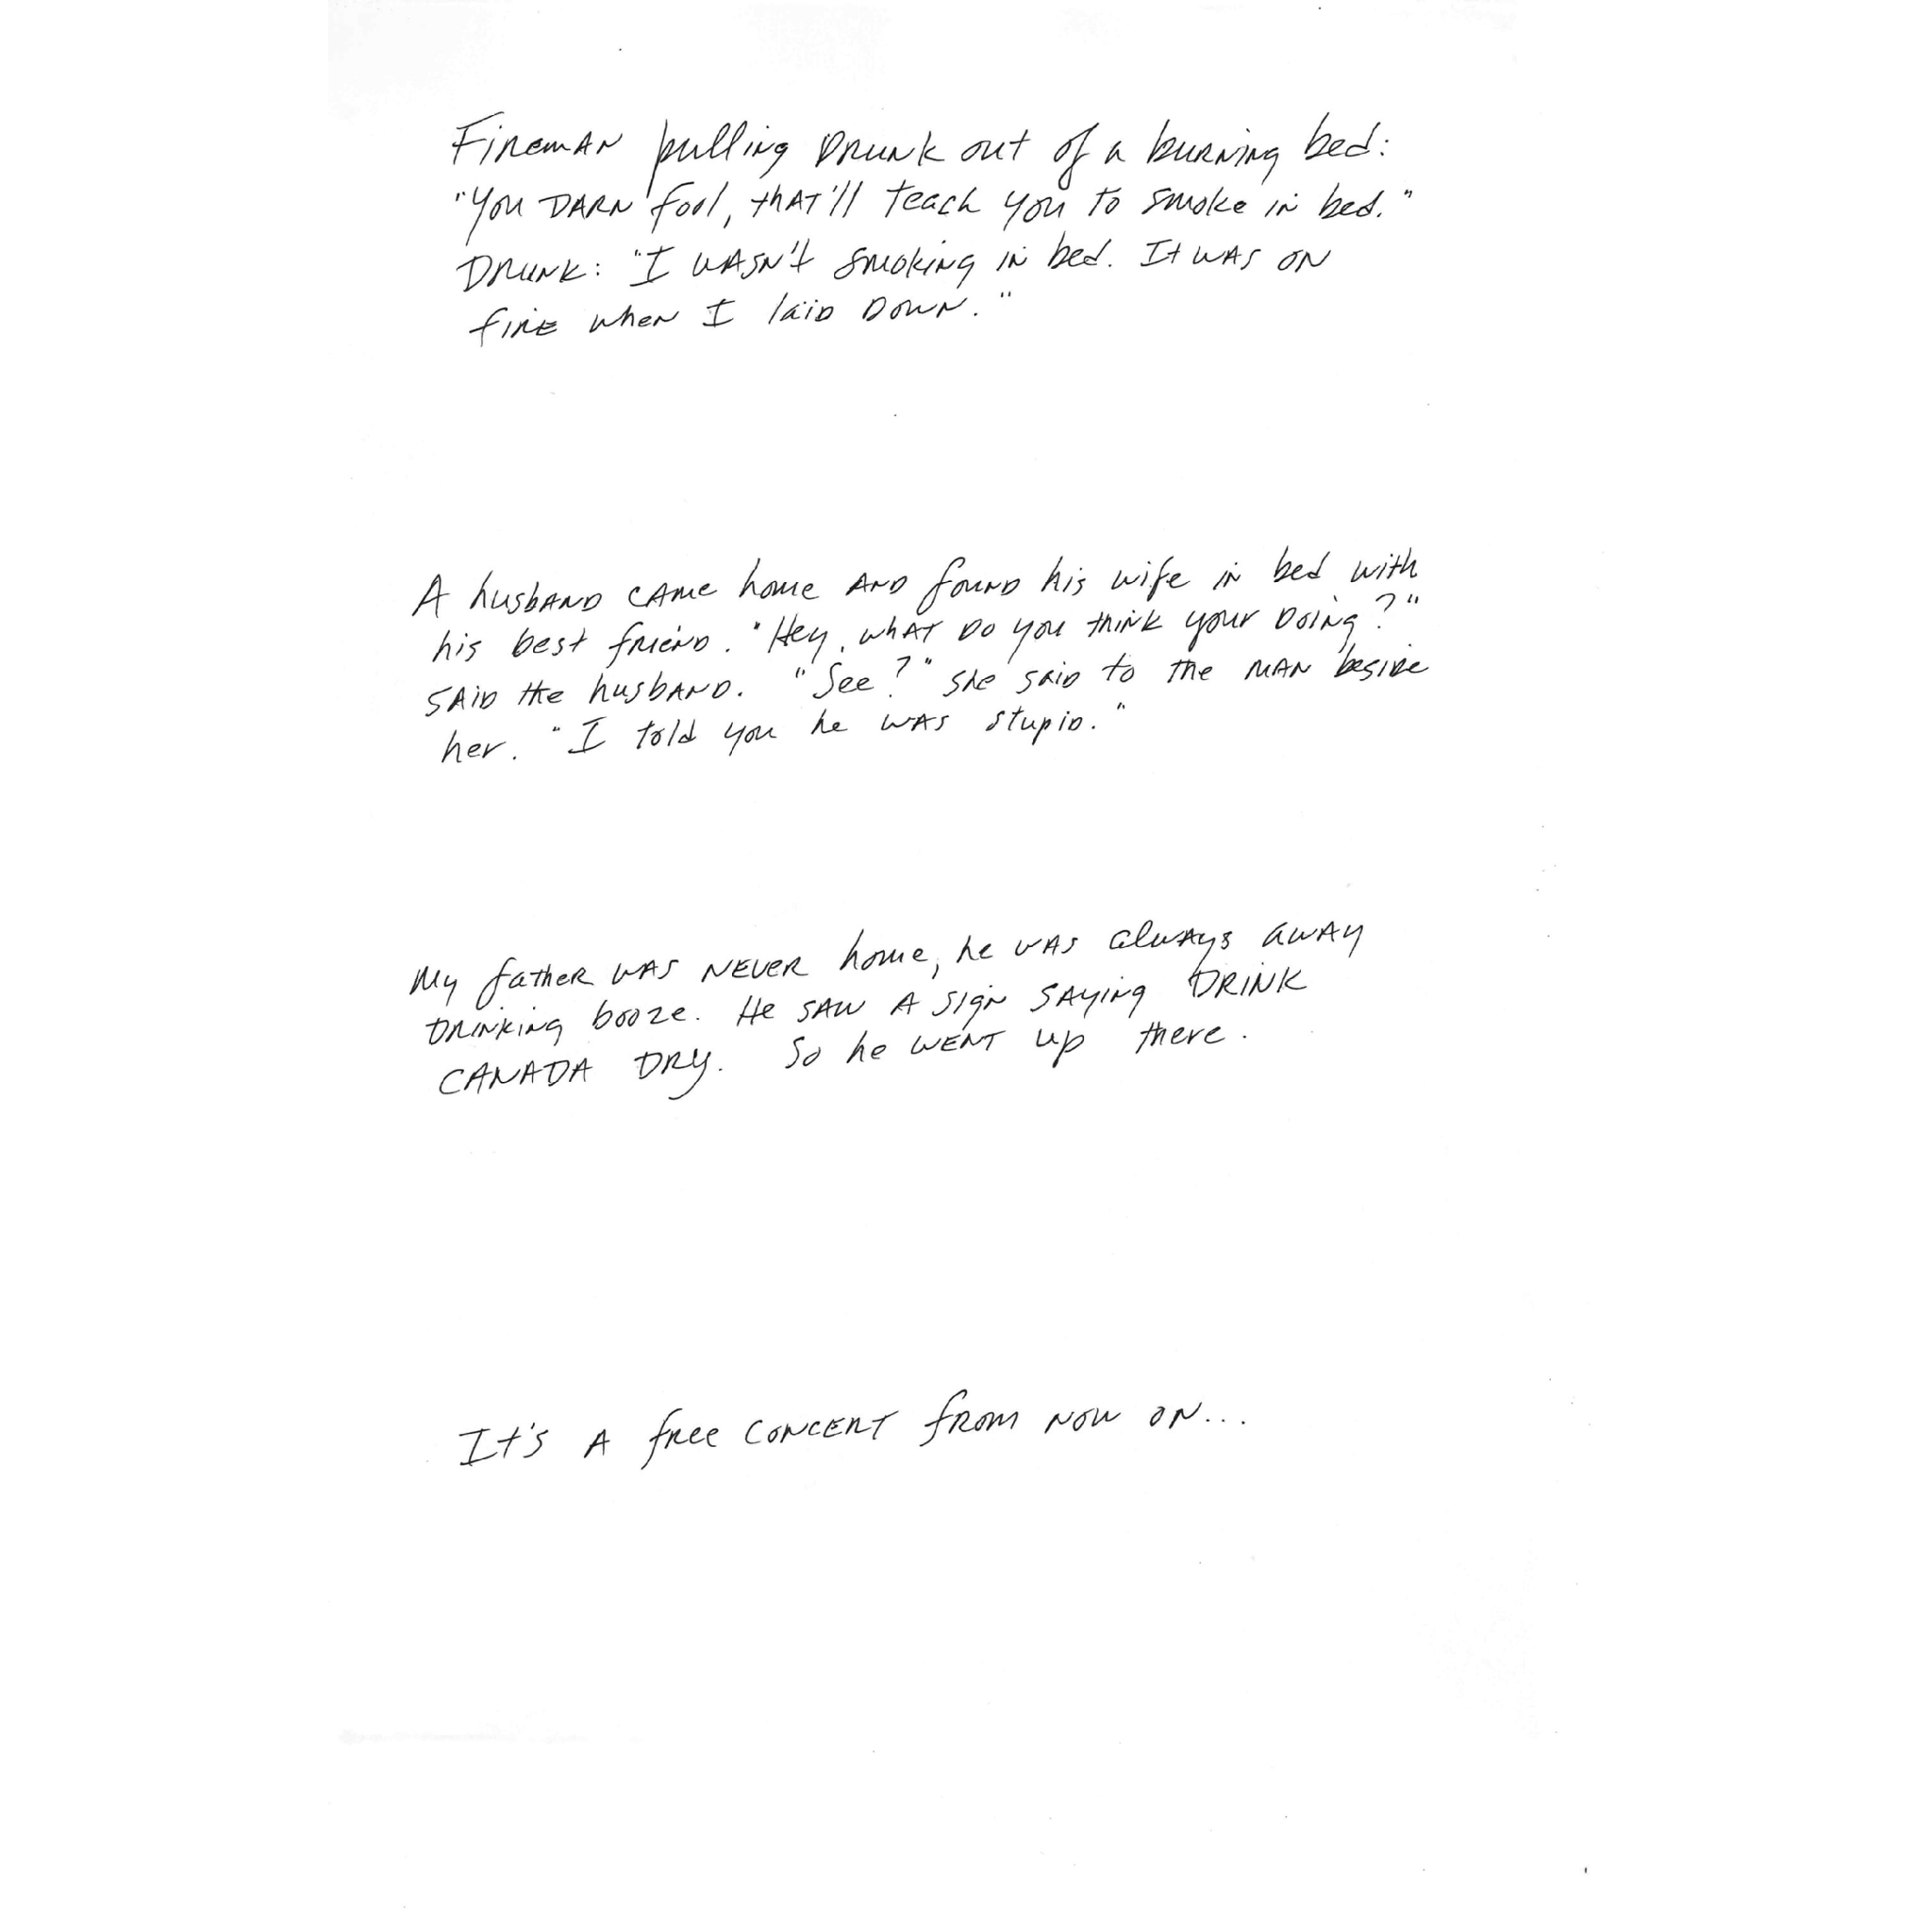 Fireman pulling Drunk out of a burning bed:
"You DARN fool, that'll teach you to smoke in bed."
DRUNK: "I wasn't smoking in bed. It was on
fire when I laid down."
A husband came home and found his wife in bed with
his best friend. "Hey, what do you think your doing?"
said the husband. "See?" she said to the man beside
her. "I told you he was stupid."
My father was never home, he was always away
drinking booze. He saw a sign saying DRINK
CANADA DRY. So he went up there.
It's a free concert from now on...